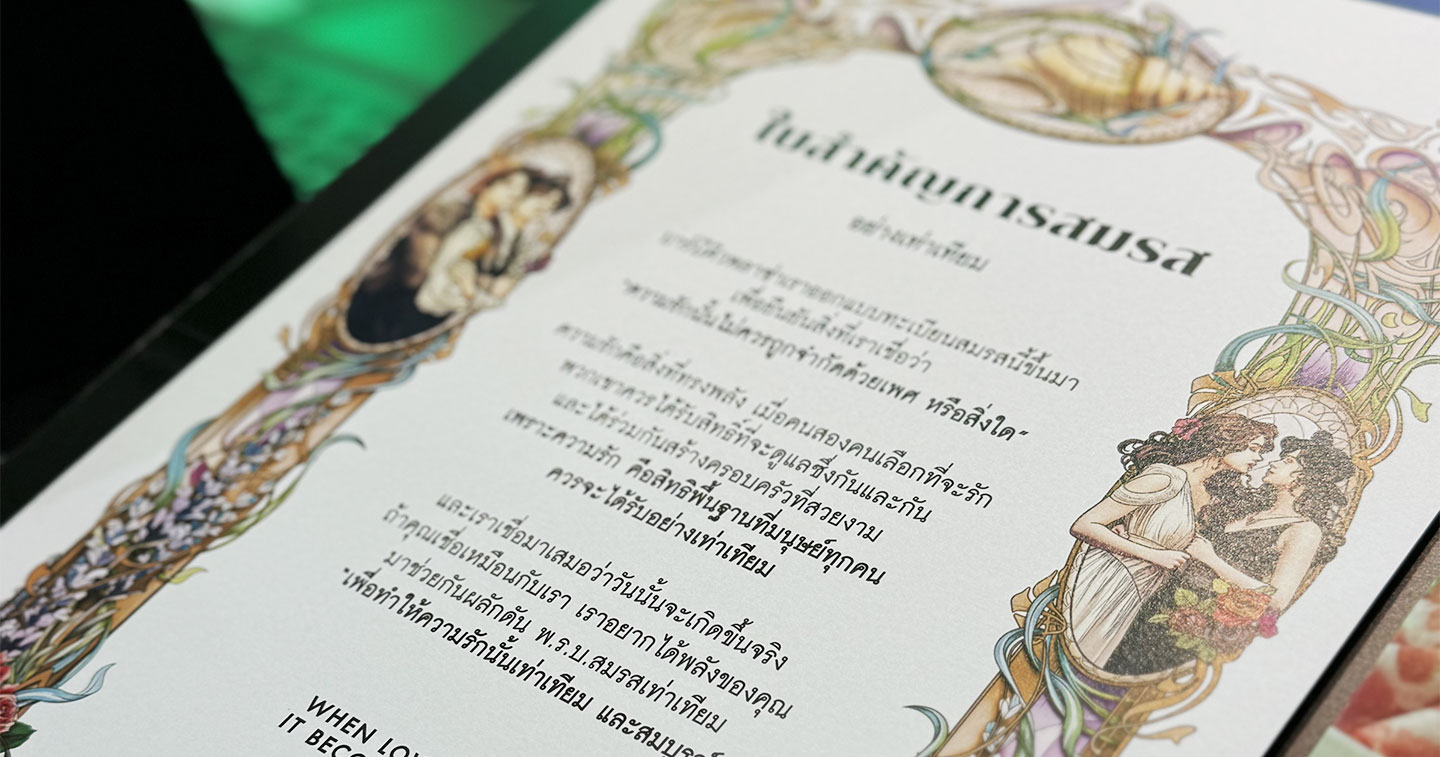 ใบสำคัญการสมรส
อย่างเท่าเทียม
เราออกแบบทะเบียนสมรสนี้ขึ้นมา
เพื่อยืนยันสิ่งที่เราเชื่อว่า
"ความรักนั้นไม่ควรถูกจำกัดด้วยเพศ หรือสิ่งใด"
ความรักคือสิ่งที่ทรงพลัง เมื่อคนสองคนเลือกที่จะรัก
พวกเขาควรได้รับสิทธิ์ที่จะดูแลซึ่งกันและกัน
และได้ร่วมกันสร้างครอบครัวที่สวยงาม
เพราะความรัก คือสิทธิพื้นฐานที่มนุษย์ทุกคน
ควรจะได้รับอย่างเท่าเทียม
และเราเชื่อมาเสมอว่าวันนั้นจะเกิดขึ้นจริง
ถ้าคุณเชื่อเหมือนกับเรา เราอยากได้พลังของคุณ
มาช่วยกันผลักดัน พ.ร.บ.สมรสเท่าเทียม
"เพื่อทำให้ความรักนั้นเท่าเทียม และสมบูรณ์
WHEN LOV
IT BECO